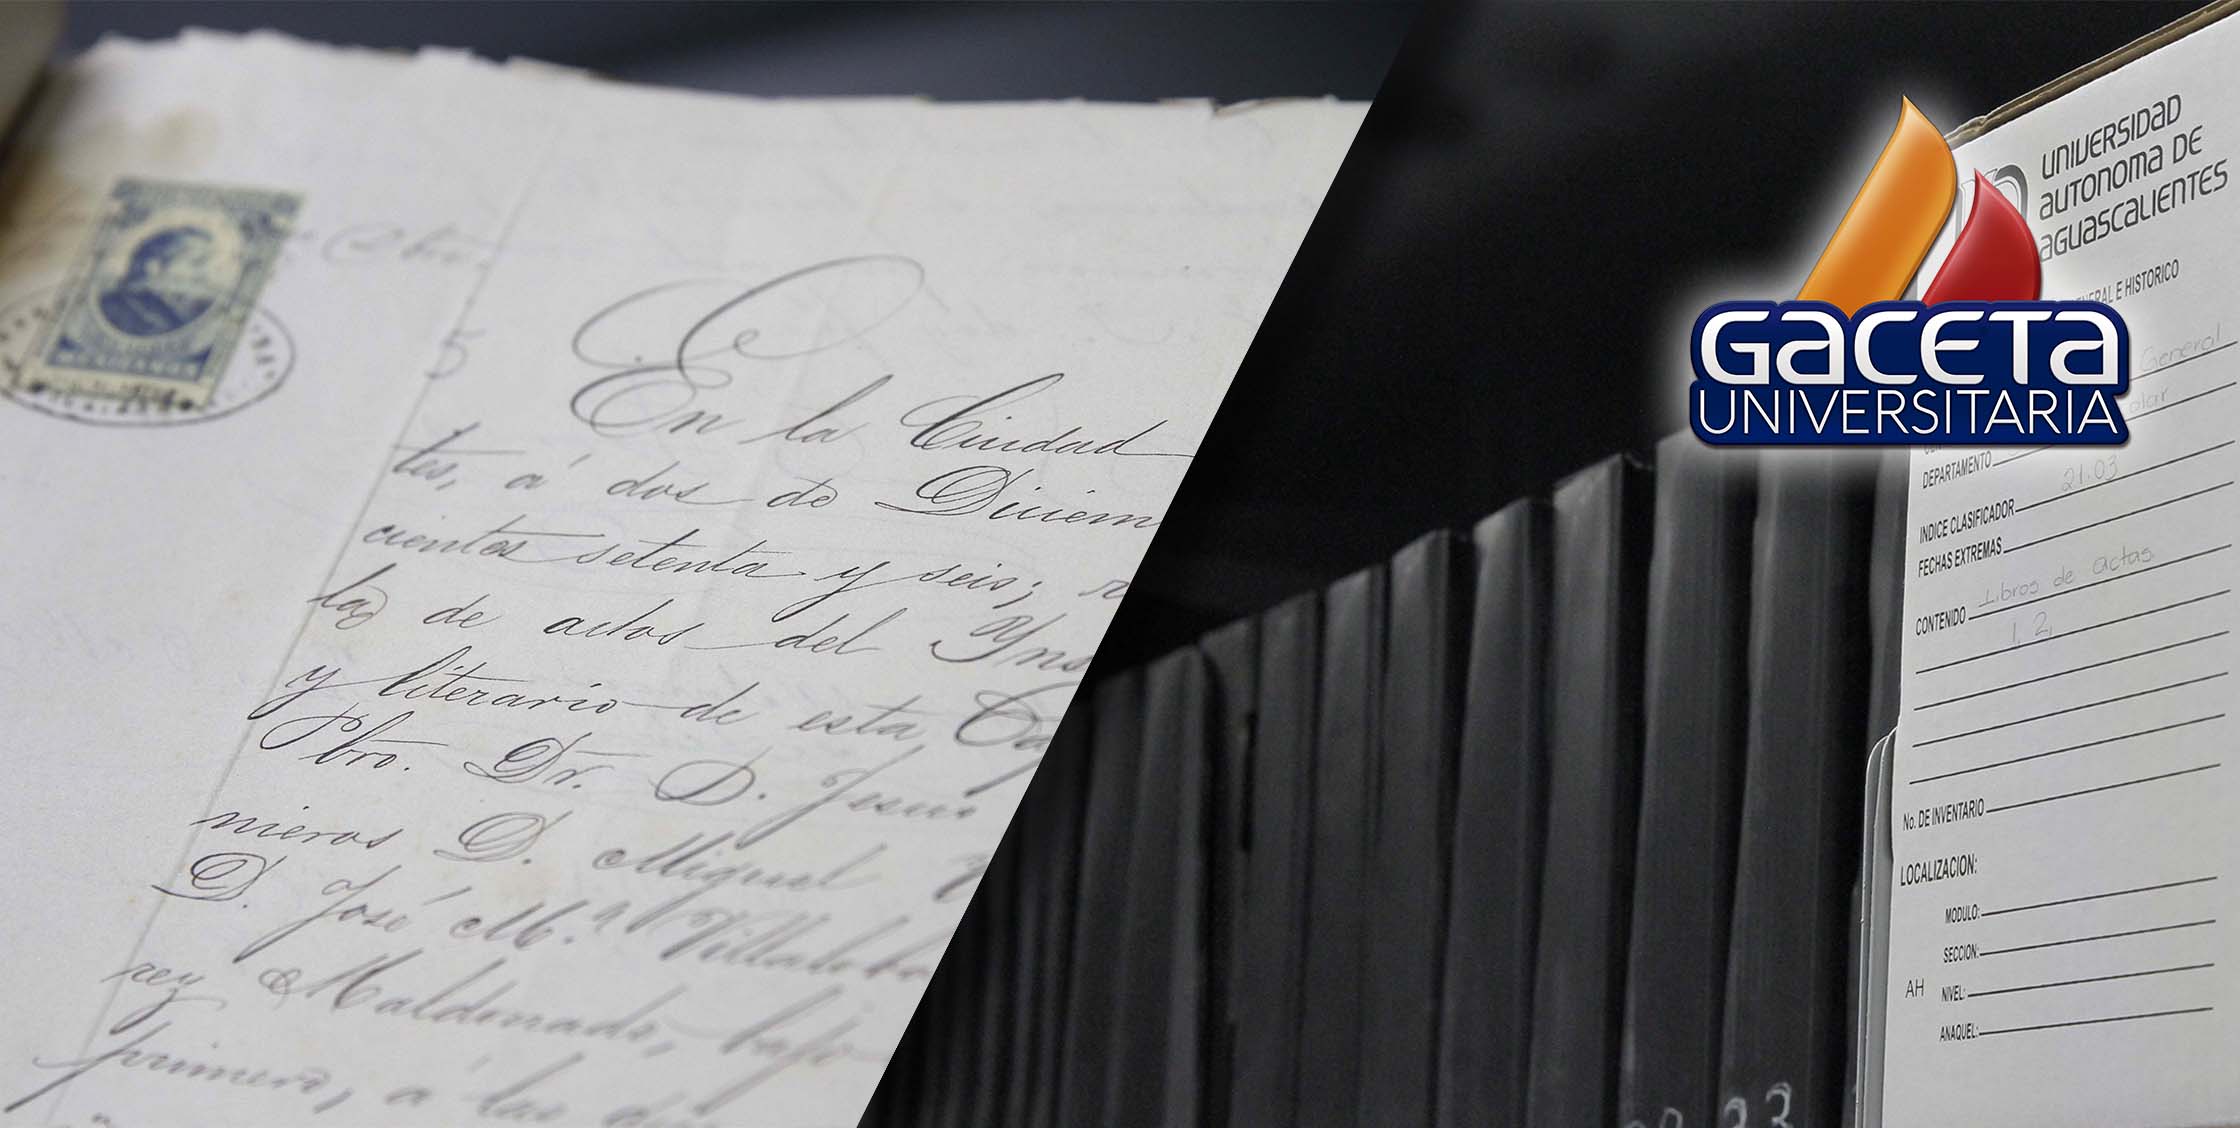 En la Ciudad
tes, á dos de Diciem
cientos setenta y seis;
la de actos del Yns
y literario de esta
Pbro. Dr. D. Jesus
nieros D. Miguel
D. José M.ª Villaloba
rey Maldonado, bajo
primera, á las
GACETA
UNIVERSITARIA
UNIVERSIDAD
AUTONOMA DE
AGUASCALIENTES
E HISTORICO
General
olar
DEPARTAMENTO
INDICE CLASIFICADOR 21.03
FECHAS EXTREMAS
CONTENIDO Libros de actas
1, 2,
No. DE INVENTARIO
LOCALIZACION:
MODULO:
SECCION:
AH NIVEL:
ANAQUEL: